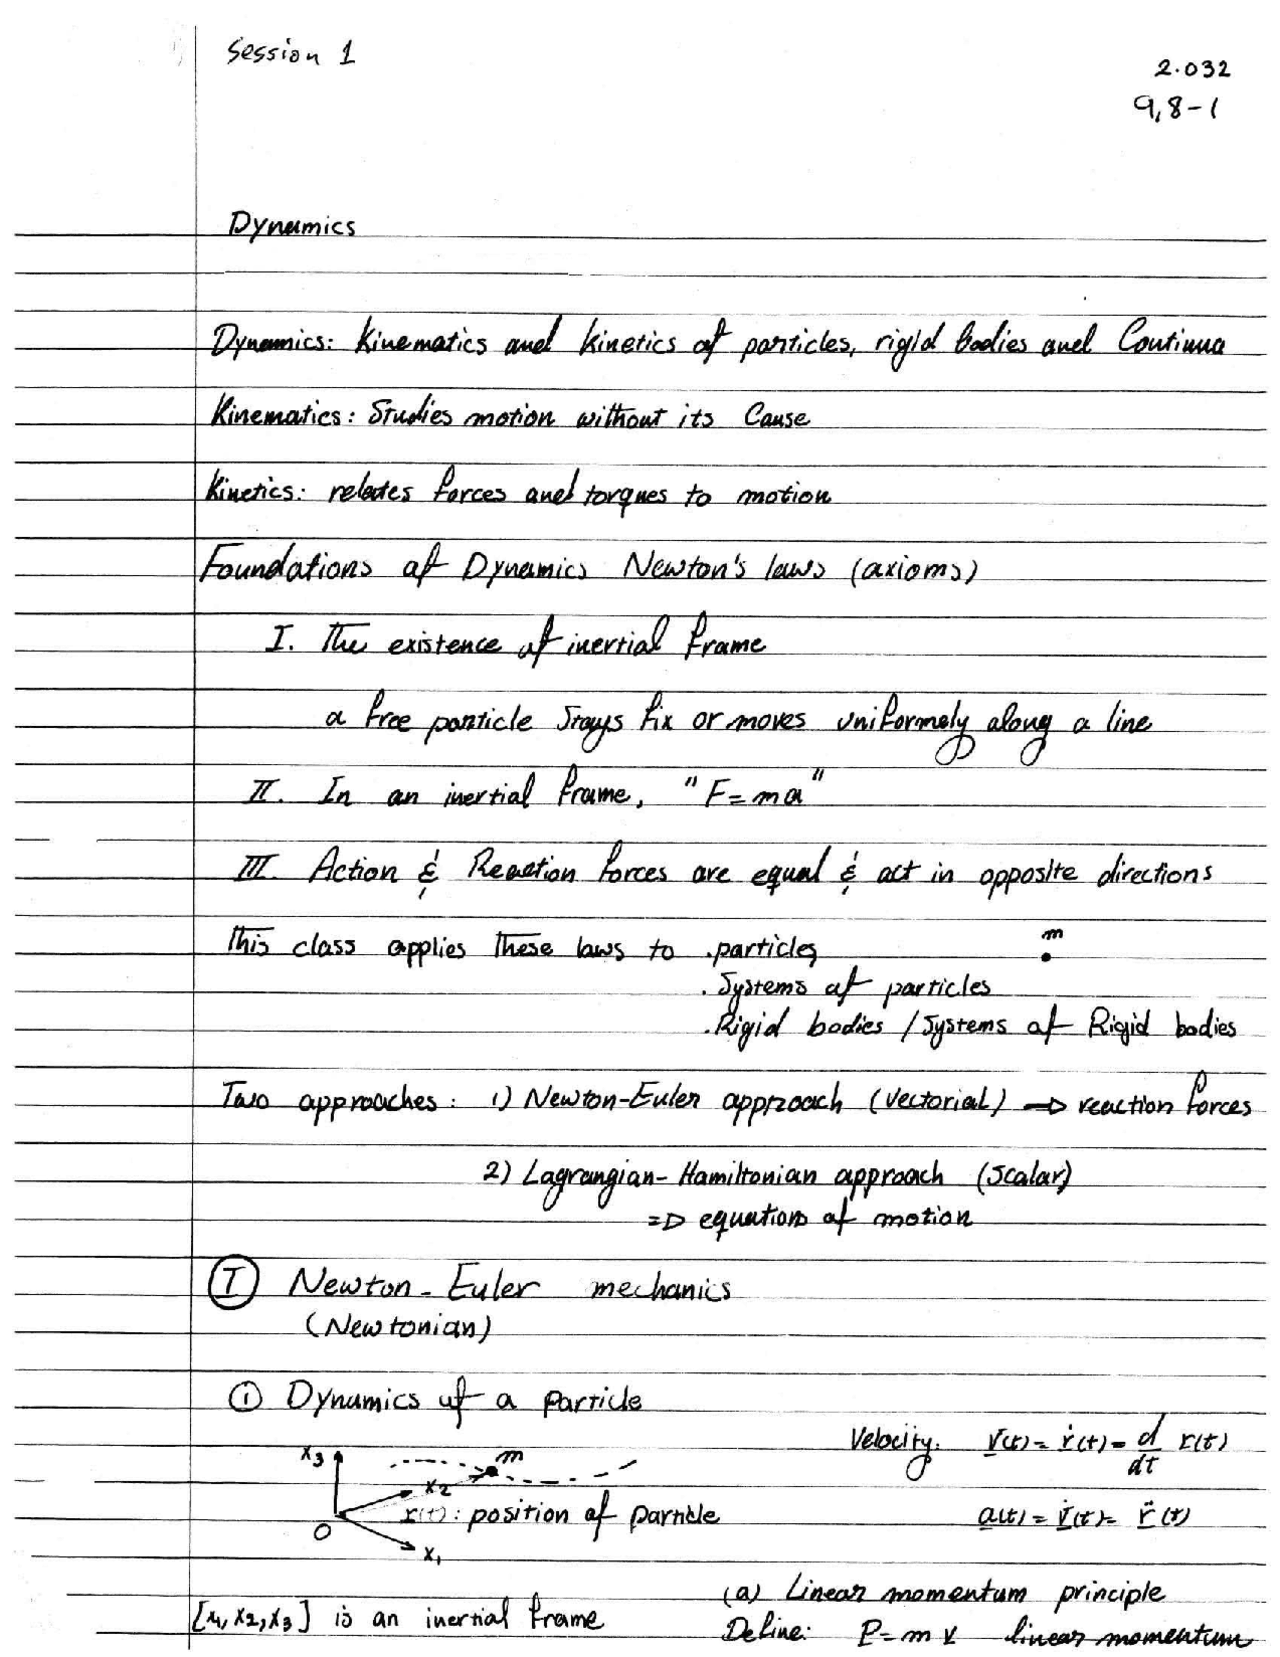 Session 1
2.032
9,8-1
Dynamics
Dynamics: Kinematics and kinetics of particles, rigid bodies and Continua
Kinematics: Studies motion without its Cause
Kinetics: relates forces and torques to motion
Foundations of Dynamics Newton's laws (axioms)
I. The existence of inertial frame
a free particle stays fix or moves uniformely along a line
II. In an inertial frame, "F=ma"
III. Action & Reaction forces are equal & act in opposite directions
This class applies these laws to . particles
m
. Systems of particles
. Rigid bodies / Systems of Rigid bodies
Two approaches: 1) Newton-Euler approach (vectorial) ⇒ reaction forces
2) Lagrangian-Hamiltonian approach (scalar)
⇒ equations of motion
Ⓘ Newton-Euler mechanics
(Newtonian)
① Dynamics of a particle
Velocity: v(t) = ṙ(t) = d/dt r(t)
x3
m
x2
r(t): position of particle
a(t) = v̇(t) = r̈(t)
O
x1
(a) Linear momentum principle
[x1, x2, x3] is an inertial frame
Define: P = m v linear momentum